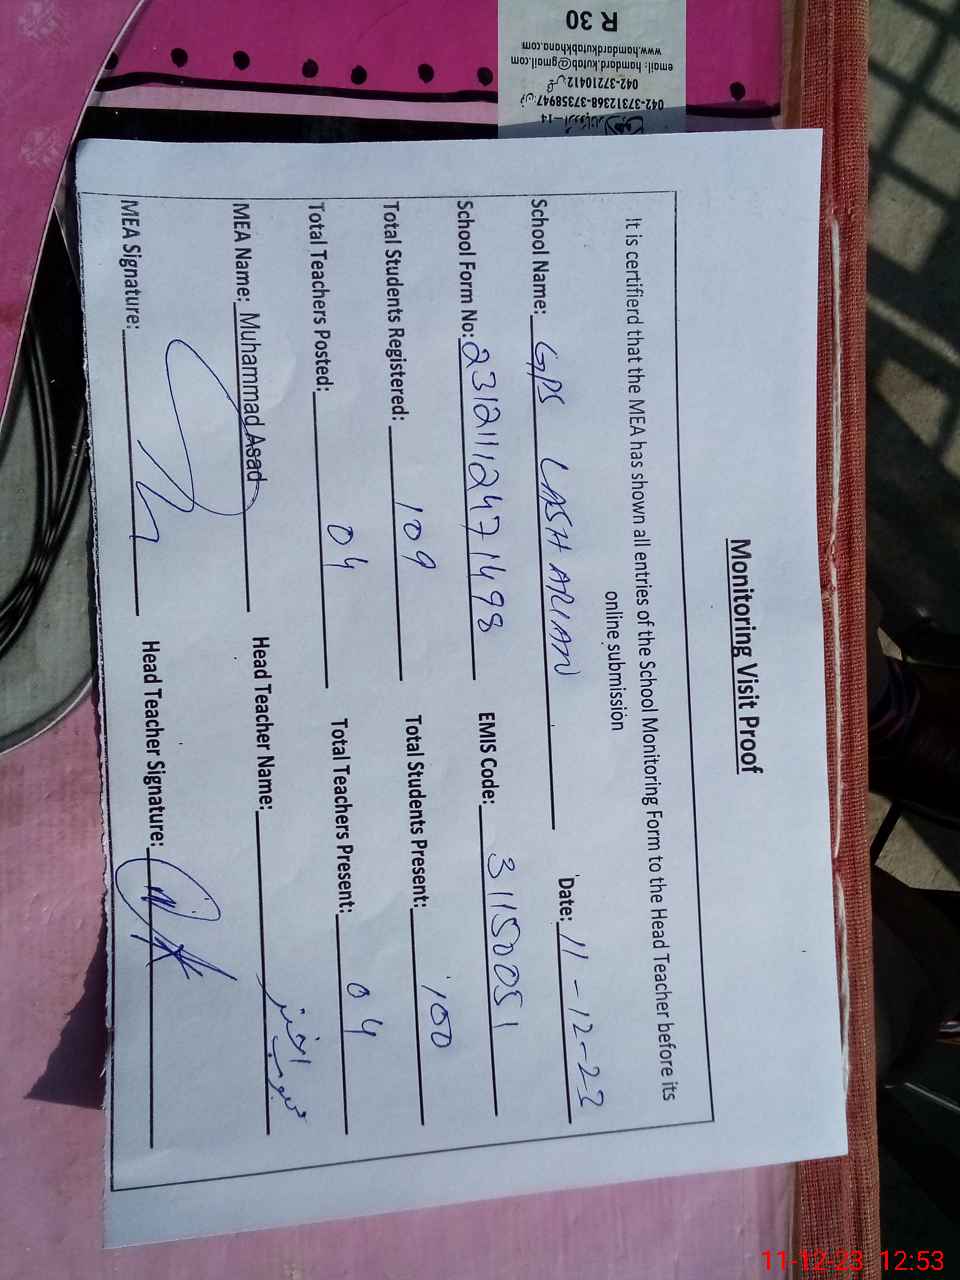 Monitoring Visit Proof
It is certifierd that the MEA has shown all entries of the School Monitoring Form to the Head Teacher before its
online submission
School Name: GPS LASHARIAN Date: 11-12-23
School Form No: 23121112471498 EMIS Code: 31150051
Total Students Registered: 109 Total Students Present: 100
Total Teachers Posted: 04 Total Teachers Present: 04
MEA Name: Muhammad Asad Head Teacher Name:
MEA Signature: Head Teacher Signature:
042-37312368-37358947
042-37210412
email: hamdard.kutab@gmail.com
www.hamdardkutabkhana.com
R 30
11-12-23 12:53